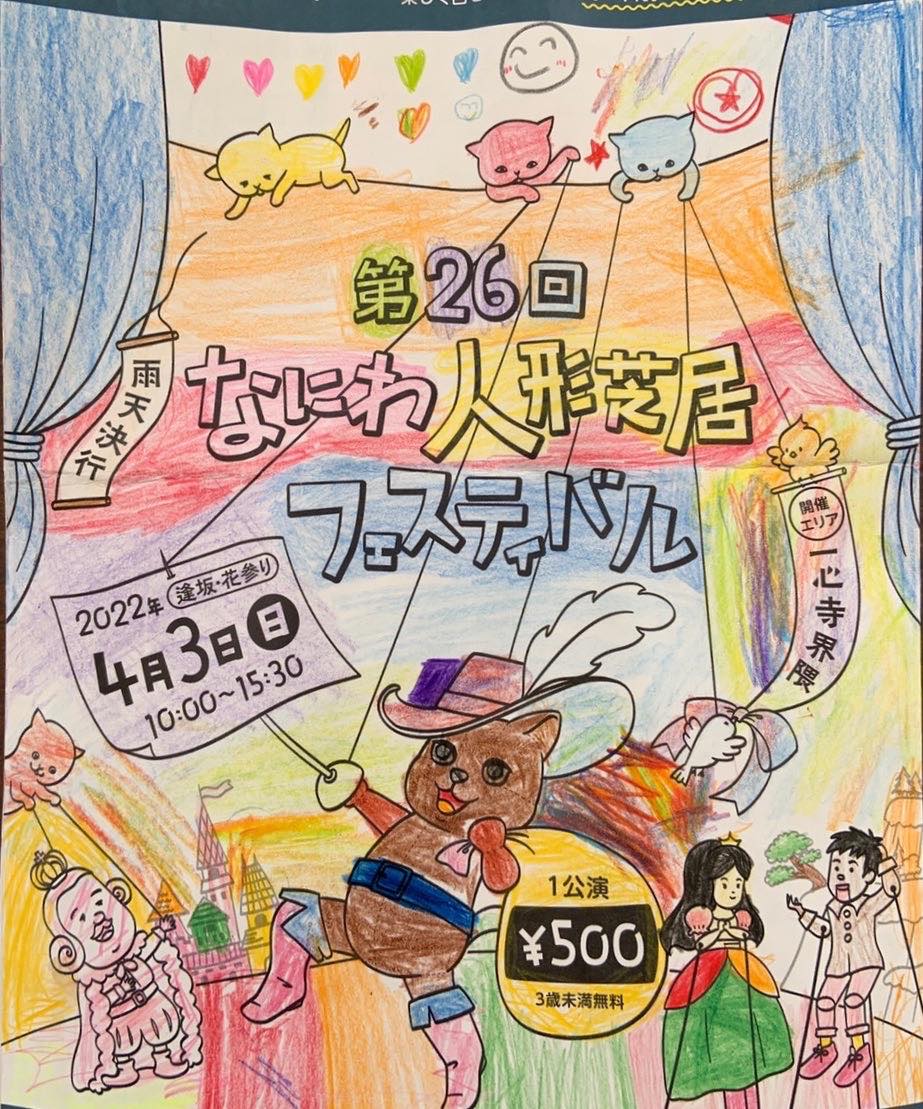 第26回
なにわ人形芝居
フェスティバル
雨天決行
開催
エリア
一心寺界隈
2022年 逢坂・花参り
4月3日日
10:00～15:30
1公演
¥500
3歳未満無料